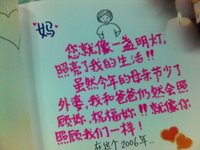 妈
您就像一盏明灯,
照亮了我的生活!!
虽然今年的母亲节少了
外婆,我和爸爸仍然会照
顾妳,祝福妳!!就像你
照顾我们一样!
在这个2006年…